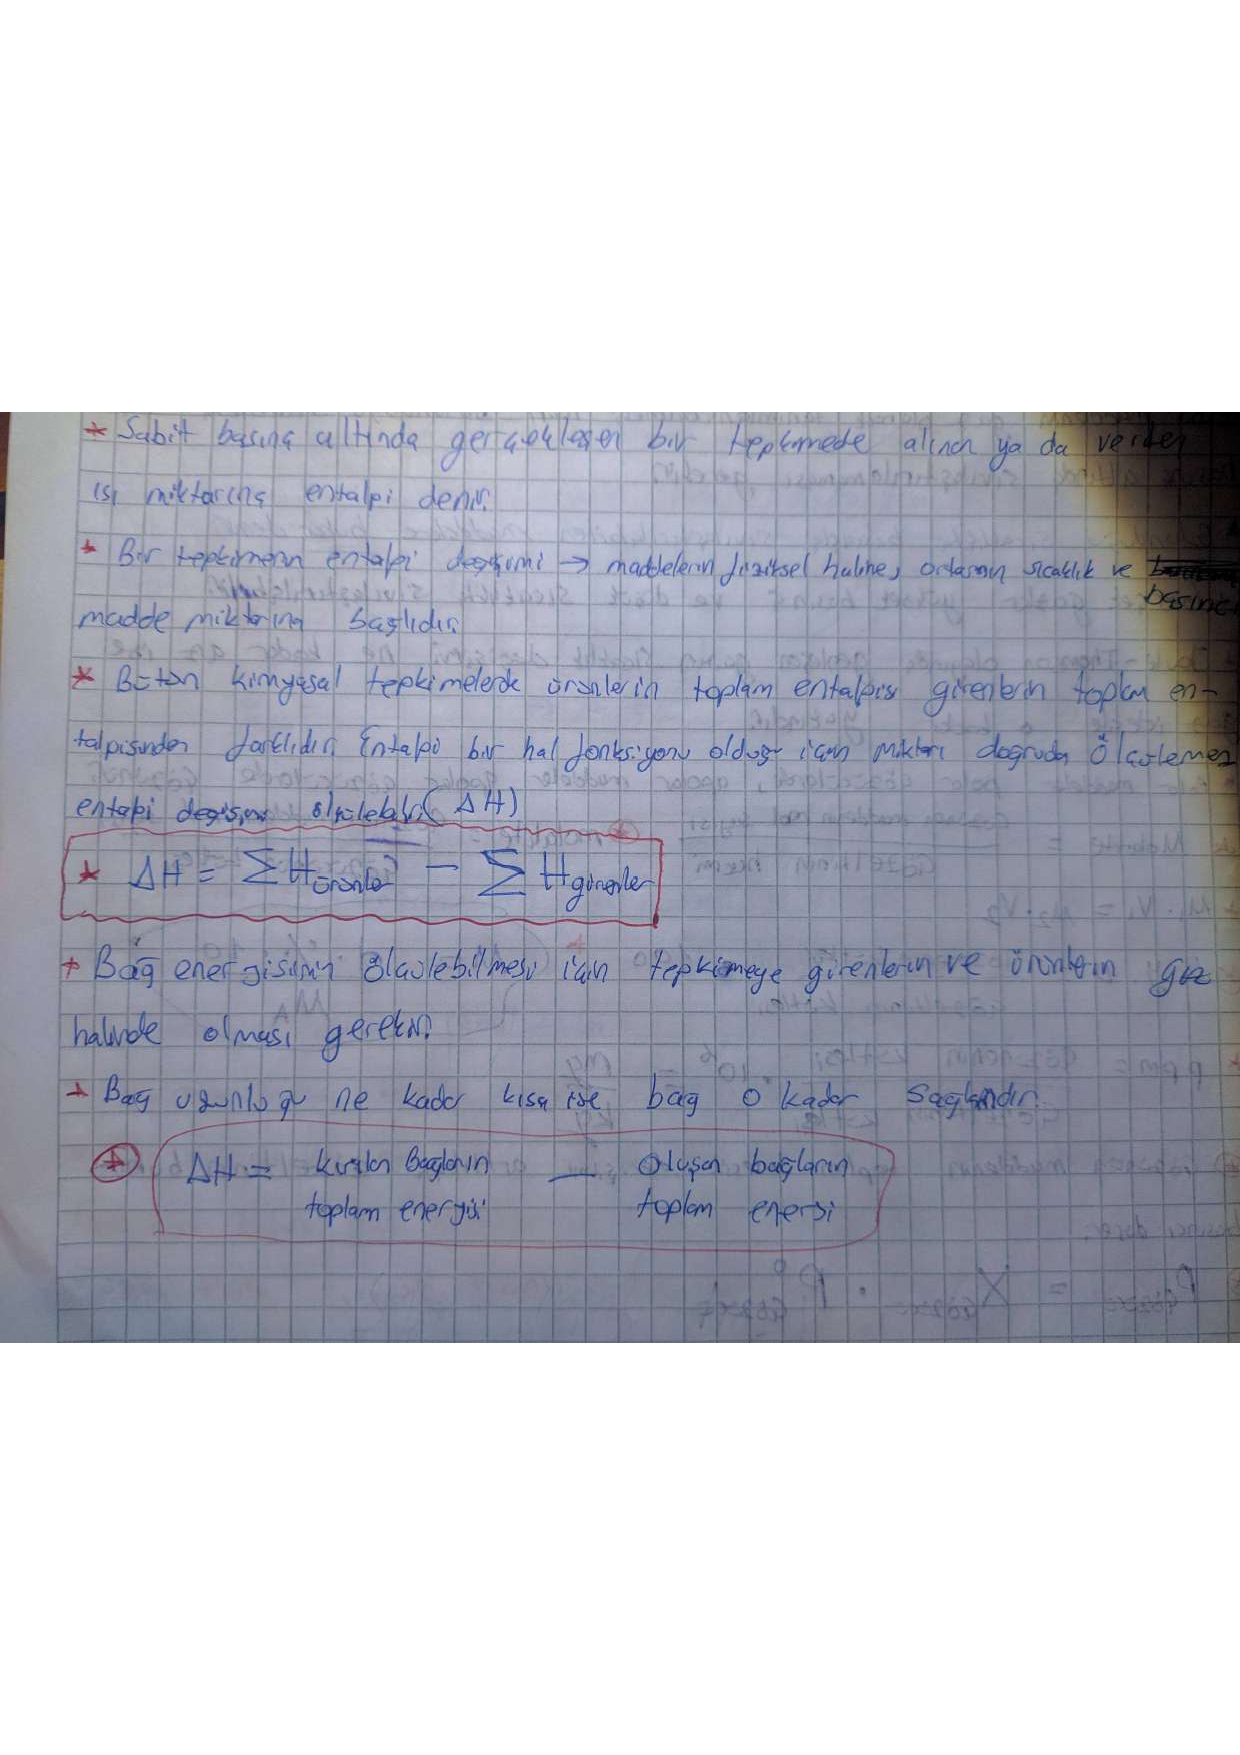 * Sabit basınç altında gerçekleşen bir tepkimede alınan ya da verilen
ısı miktarına entalpi denir.
* Bir tepkimenin entalpi değişimi → maddelerin fiziksel haline, ortamın sıcaklık ve
basıncı
madde miktarına bağlıdır.
* Bütün kimyasal tepkimelerde ürünlerin toplam entalpisi girenlerin toplam en-
talpisinden farklıdır. Entalpi bir hal fonksiyonu olduğu için miktarı doğrudan ölçülemez
entalpi değişimi ölçülebilir (ΔH)
* ΔH = ΣHürünler - ΣHgirenler
* Bağ enerjisinin ölçülebilmesi için tepkimeye girenlerin ve ürünlerin gaz
halinde olması gerekir.
* Bağ uzunluğu ne kadar kısa ise bağ o kadar sağlamdır.
* ΔH = kırılan Bağların — oluşan bağların
toplam energisi toplam enersi